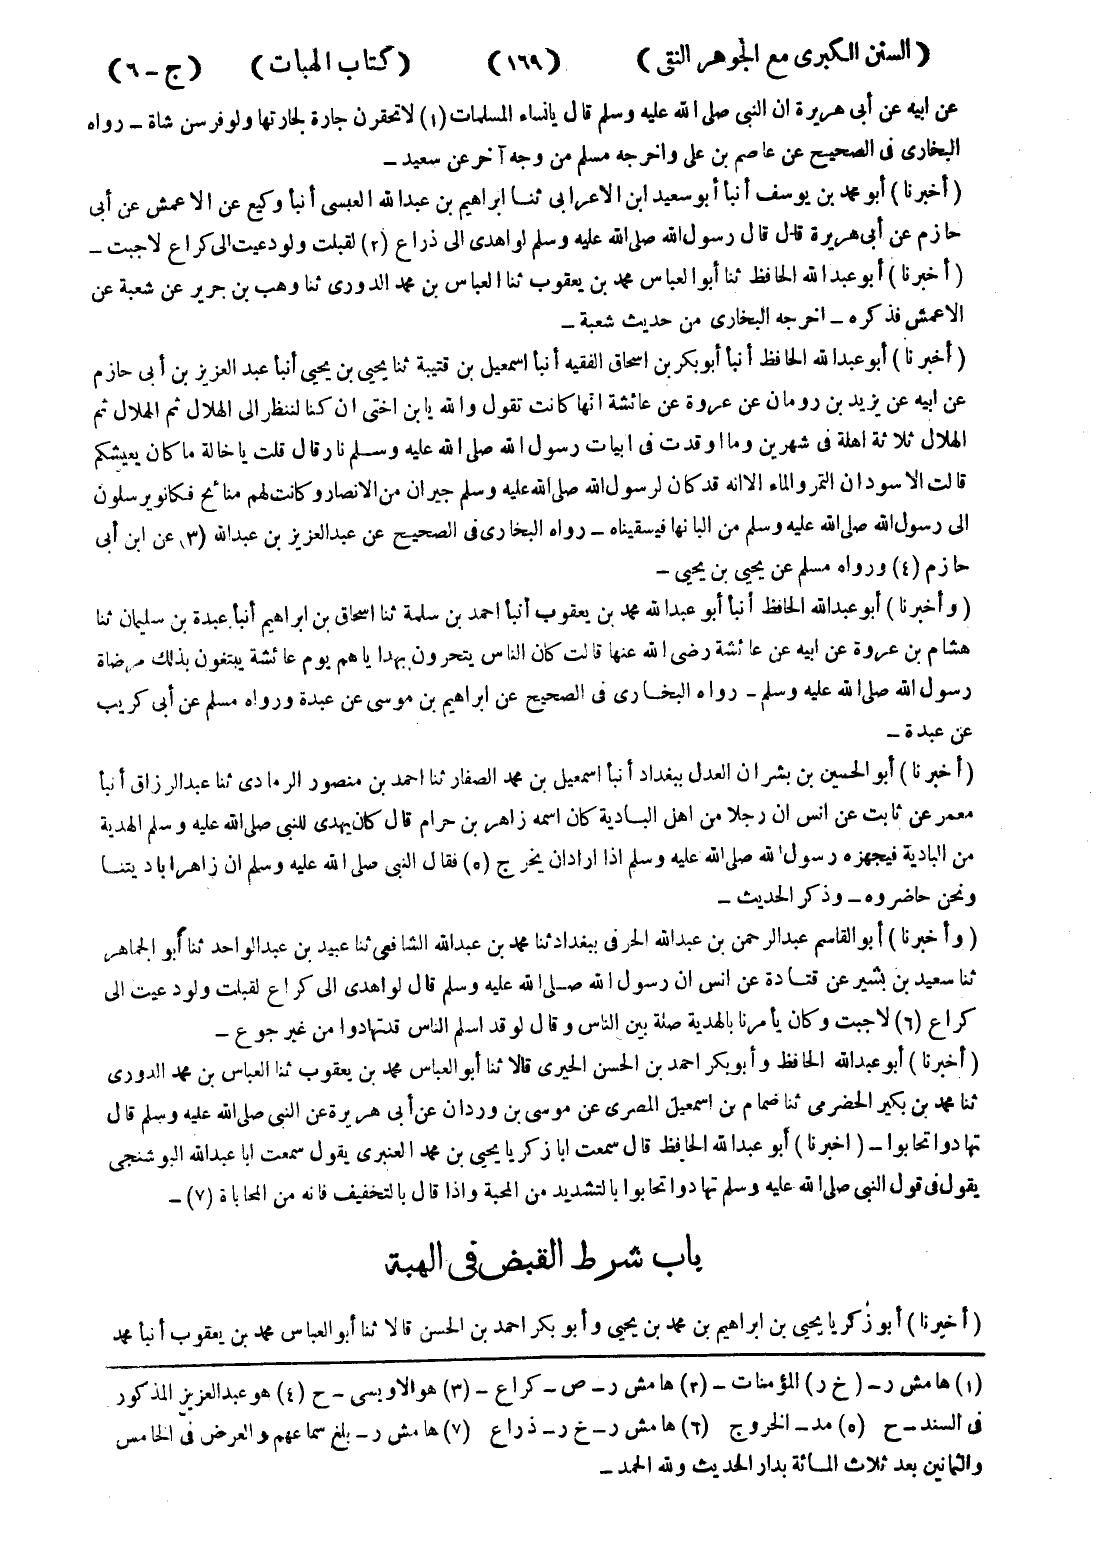 (السنن الكبرى مع الجوهر النقى) (١٦٩) (كتاب الهبات) (ج - ٦)
عن ابيه عن أبى هريرة ان النبى صلى الله عليه وسلم قال يانساء المسلمات (١) لاتحقرن جارة لجارتها ولو فرسن شاة - رواه
البخارى فى الصحيح عن عاصم بن على واخرجه مسلم من وجه آخر عن سعيد -
(أخبرنا) أبو محمد بن يوسف أنبأ أبو سعيد ابن الاعرابى ثنا ابراهيم بن عبدالله العبسى أنبأ وكيع عن الاعمش عن أبى
حازم عن أبى هريرة قال قال رسول الله صلى الله عليه وسلم لو اهدى الى ذراع (٢) لقبلت ولو دعيت الى كراع لاجبت -
(أخبرنا) أبو عبد الله الحافظ ثنا أبو العباس محمد بن يعقوب ثنا العباس بن محمد الدورى ثنا وهب بن جرير عن شعبة عن
الاعمش فذكره - اخرجه البخارى من حديث شعبة -
(أخبرنا) أبو عبدالله الحافظ أنبأ أبو بكر بن اسحاق الفقيه أنبأ اسمعيل بن قتيبة ثنا يحيى بن يحيى أنبأ عبد العزيز بن أبى حازم
عن ابيه عن يزيد بن رومان عن عروة عن عائشة انها كانت تقول والله يا بن اختى ان كنا لننظر الى الهلال ثم الهلال ثم
الهلال ثلاثة اهلة فى شهرين وما اوقدت فى ابيات رسول الله صلى الله عليه وسلم نار قال قلت يا خالة ما كان يعيشكم
قالت الاسودان التمر والماء الا انه قد كان لرسول الله صلى الله عليه وسلم جيران من الانصار وكانت لهم منائح فكانوا يرسلون
الى رسول الله صلى الله عليه وسلم من البانها فيسقيناه - رواه البخارى فى الصحيح عن عبدالعزيز بن عبدالله (٣) عن ابن أبى
حازم (٤) ورواه مسلم عن يحيى بن يحيى -
(وأخبرنا) أبو عبدالله الحافظ أنبأ أبو عبدالله محمد بن يعقوب أنبأ احمد بن سلمة ثنا اسحاق بن ابراهيم أنبأ عبدة بن سليمان ثنا
هشام بن عروة عن ابيه عن عائشة رضى الله عنها قالت كان الناس يتحرون بهدا ياهم يوم عائشة يبتغون بذلك مرضاة
رسول الله صلى الله عليه وسلم - رواه البخارى فى الصحيح عن ابراهيم بن موسى عن عبدة ورواه مسلم عن أبى كريب
عن عبدة -
(أخبرنا) أبو الحسين بن بشران العدل ببغداد أنبأ اسمعيل بن محمد الصفار ثنا احمد بن منصور الرمادى ثنا عبدالرزاق أنبأ
معمر عن ثابت عن انس ان رجلا من اهل البادية كان اسمه زاهر بن حرام قال كان يهدى للنبى صلى الله عليه وسلم الهدية
من البادية فيجهزه رسول الله صلى الله عليه وسلم اذا اراد ان يخرج (٥) فقال النبى صلى الله عليه وسلم ان زاهرا باديتنا
ونحن حاضروه - وذكر الحديث -
(وأخبرنا) أبو القاسم عبدالرحمن بن عبدالله الحرفى ببغداد ثنا محمد بن عبدالله الشافعى ثنا عبيد بن عبدالواحد ثنا أبو الجماهر
ثنا سعيد بن بشير عن قتادة عن انس ان رسول الله صلى الله عليه وسلم قال لو اهدى الى كراع لقبلت ولو دعيت الى
كراع (٦) لاجبت وكان يأمرنا بالهدية صلة بين الناس وقال لو قد اسلم الناس قد تهادوا من غير جوع -
(أخبرنا) أبو عبدالله الحافظ وأبو بكر احمد بن الحسن الحيرى قالا ثنا أبو العباس محمد بن يعقوب ثنا العباس بن محمد الدورى
ثنا محمد بن بكير الحضرمى ثنا ضمام بن اسمعيل المصرى عن موسى بن وردان عن أبى هريرة عن النبى صلى الله عليه وسلم قال
تهادوا تحابوا - (اخبرنا) أبو عبدالله الحافظ قال سمعت ابا زكريا يحيى بن محمد العنبرى يقول سمعت ابا عبدالله البوشنجى
يقول فى قول النبى صلى الله عليه وسلم تهادوا تحابوا بالتشديد من المحبة واذا قال بالتخفيف فانه من المحاباة (٧) -
باب شرط القبض فى الهبة
(أخبرنا) أبو زكريا يحيى بن ابراهيم بن محمد بن يحيى وأبو بكر احمد بن الحسن قالا ثنا أبو العباس محمد بن يعقوب أنبأ محمد
(١) هامش ر - (خ ر) المؤمنات - (٢) هامش ر - ص - كراع - (٣) هو الاويسى - ح (٤) هو عبدالعزيز المذكور
فى السند - ح (٥) مد - الخروج (٦) هامش ر - خ ر - ذراع (٧) هامش ر - بلغ سماعهم والعرض فى الخامس
والثمانين بعد ثلاث المائة بدار الحديث ولله الحمد -